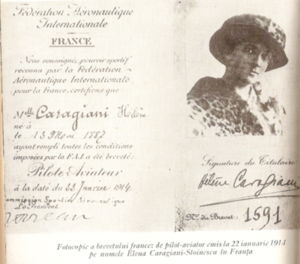 Fédération Aéronautique
Internationale
FRANCE
Nous soussignés, pouvoir sportif
reconnu par la Fédération
Aéronautique Internationale
pour la France, certifions que
Mlle Caragiani Hélène
né à
le 13 Mai 1887
ayant rempli toutes les conditions
imposées par la F.A.I. a été breveté:
Pilote-Aviateur
à la date du 22 Janvier 1914.
Commission Sportive
Le Président
Signature du Titulaire
Hélène Caragiani
No. du Brevet: 1591
Fotocopie a brevetului francez de pilot-aviator emis la 22 ianuarie 1914
pe numele Elena Caragiani-Stoinescu în Franța